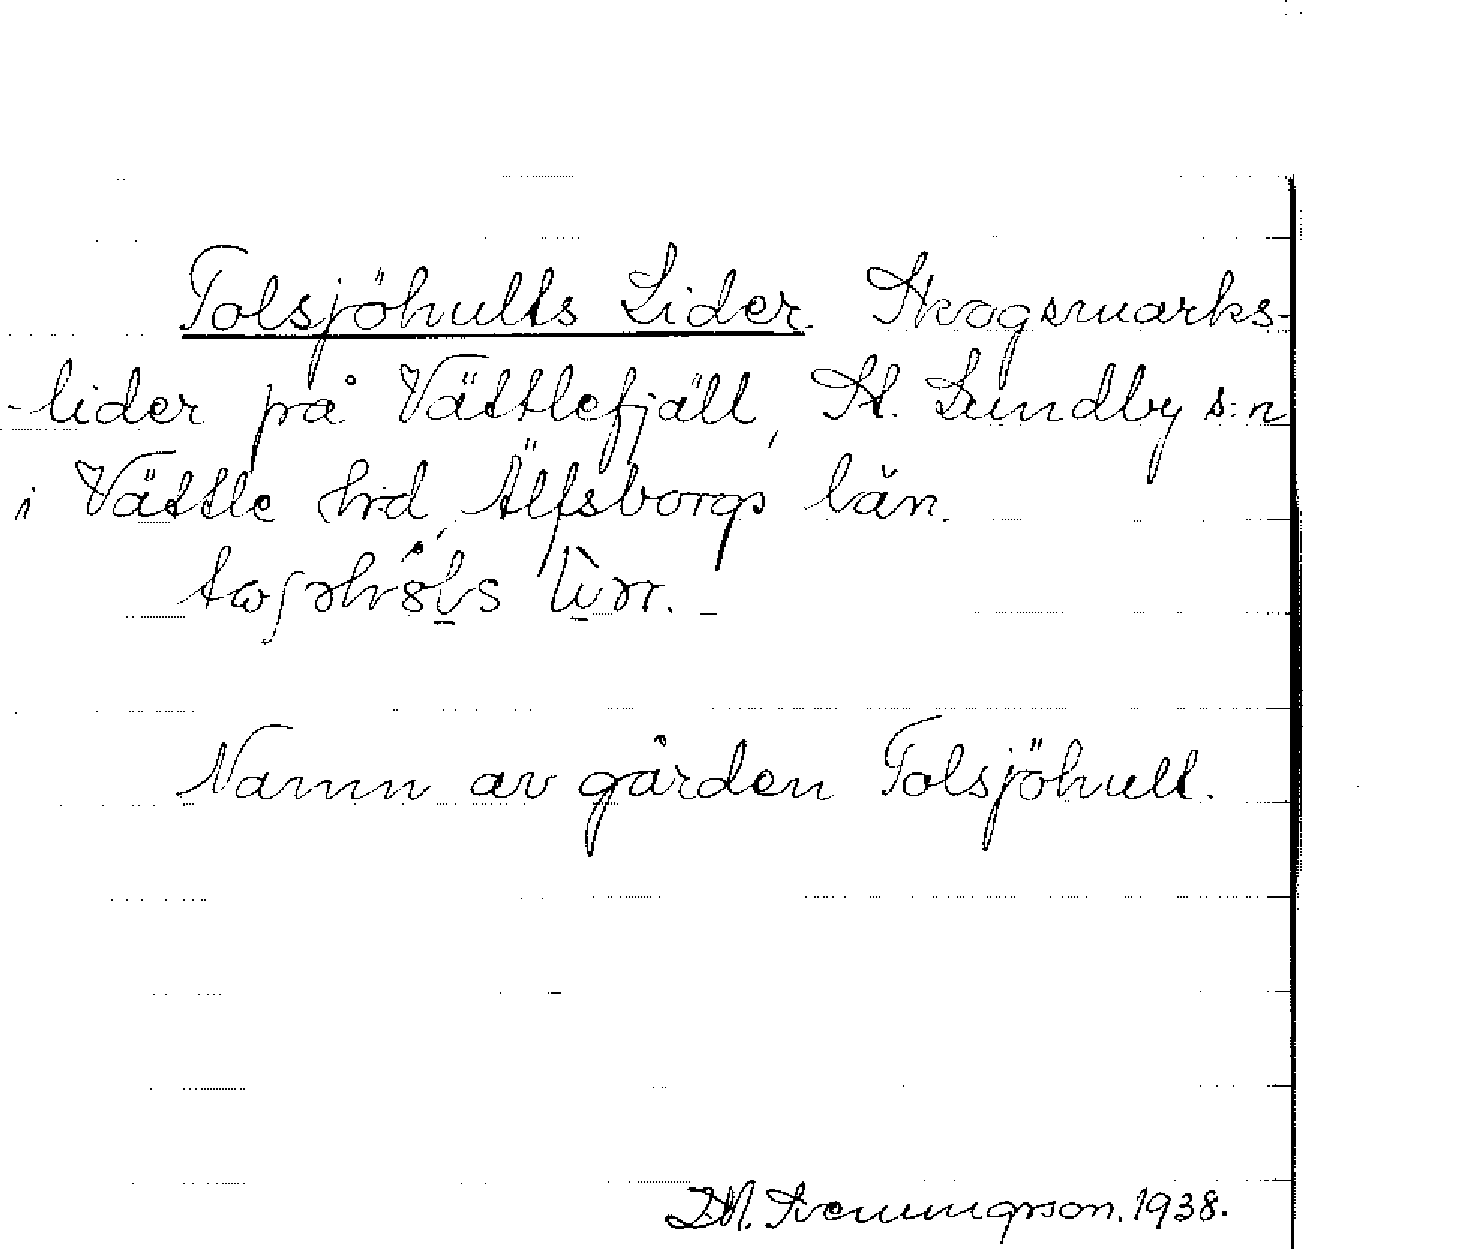 Tolsjöhults Lider. Skogsmarks-
-lider på Vättlefjäll, St. Lundby s:n
i Vättle hd, Älfsborgs län.
Namn av gården Tolsjöhult.
1938.